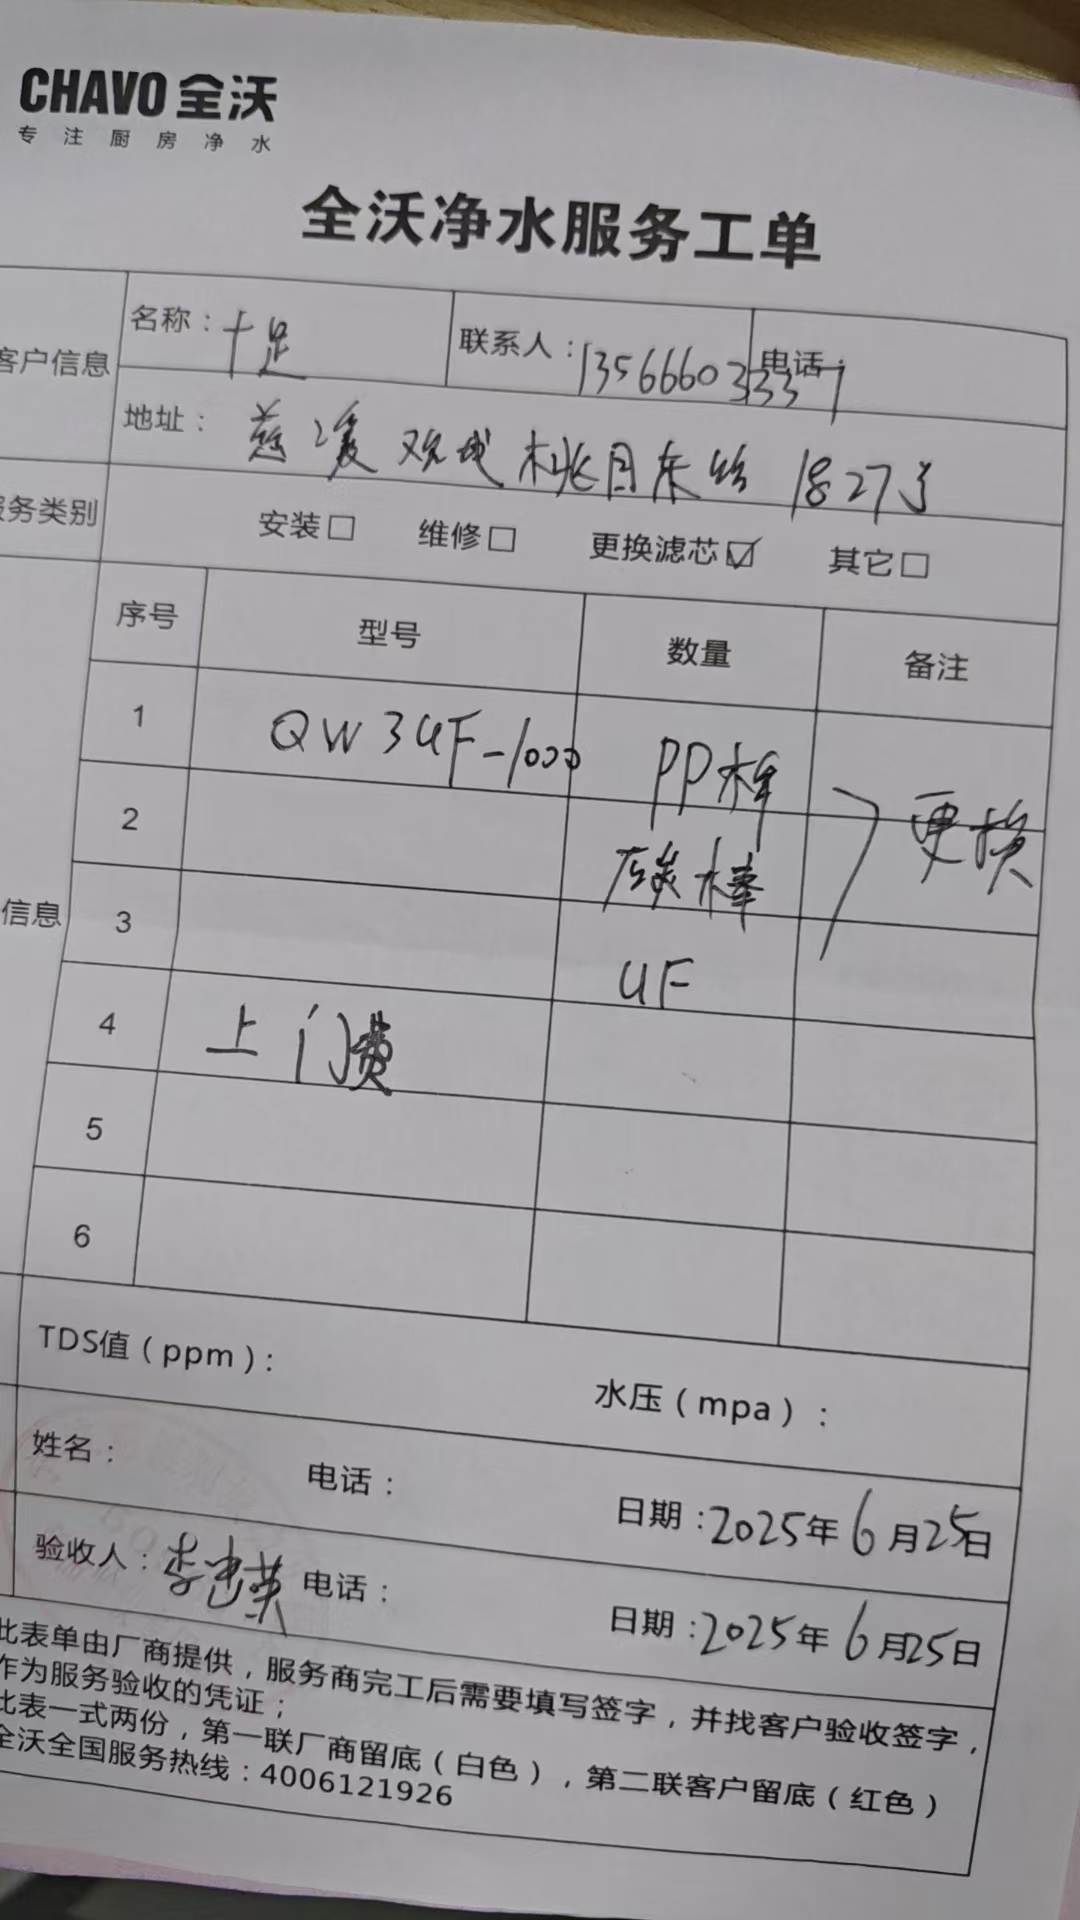 CHAVO 全沃
专注厨房净水
全沃净水服务工单
客户信息
名称：十足
联系人：13566603337
电话：
地址：慈溪观城桃园东路1827号
服务类别
安装□ 维修□ 更换滤芯☑ 其它□
序号 型号 数量 备注
1 QW3UF-1000 PP棒
更换
2 碳棒
信息
3 UF
4 上门费
5
6
TDS值（ppm）： 水压（mpa）：
姓名： 电话： 日期：2025年6月25日
验收人：李忠英 电话： 日期：2025年6月25日
此表单由厂商提供，服务商完工后需要填写签字，并找客户验收签字，
作为服务验收的凭证；
此表一式两份，第一联厂商留底（白色），第二联客户留底（红色）
全沃全国服务热线：4006121926